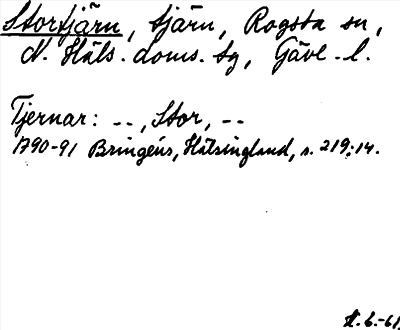 Stortjärn, tjärn, Rogsta sn,
N. Häls. doms. sg, Gävl. l.
Tjernar: --, Stor, --
1790-91 Bringéus, Hälsingland, s. 219:14.
6.-61.